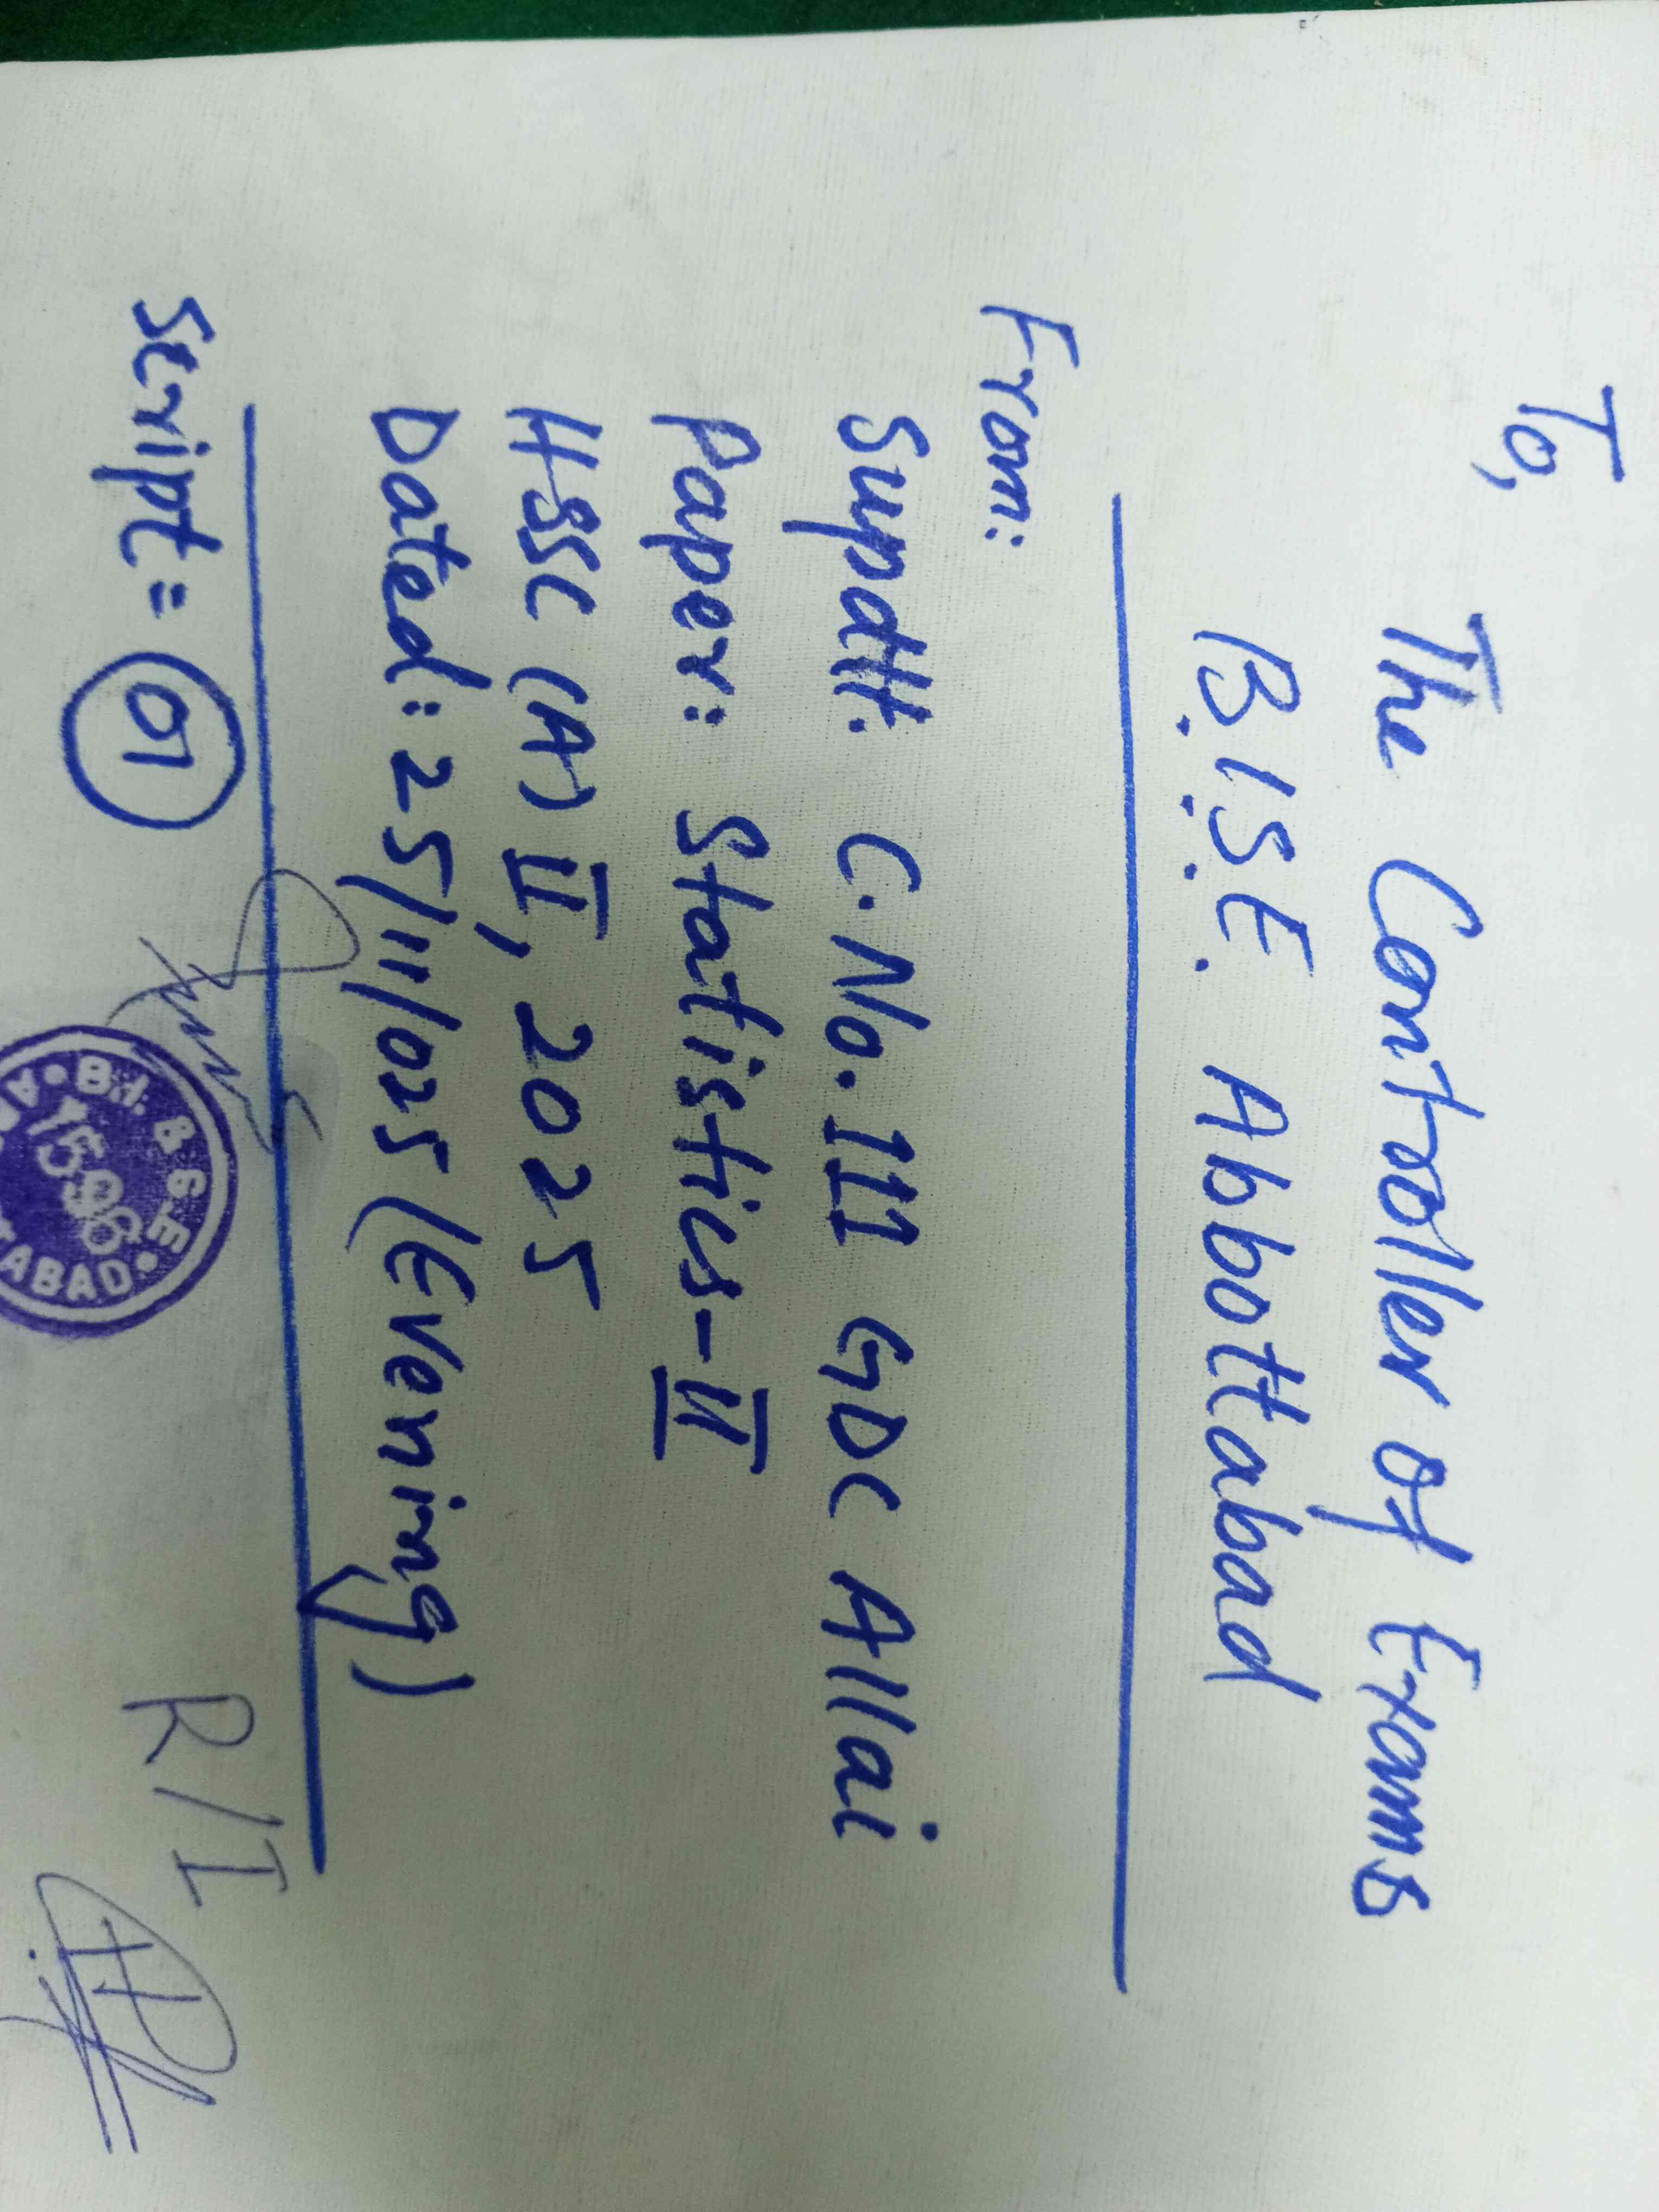 To,
The Controller of Exams
B.I.S.E. Abbottabad
From:
Supdtt: C.No.111 GDC Allai
Paper: Statistics-II
HSSC (A) II, 2025
Dated: 25/11/025 (Evening)
Script = 01
R/I
B.I. & S.E.
1596
ABAD